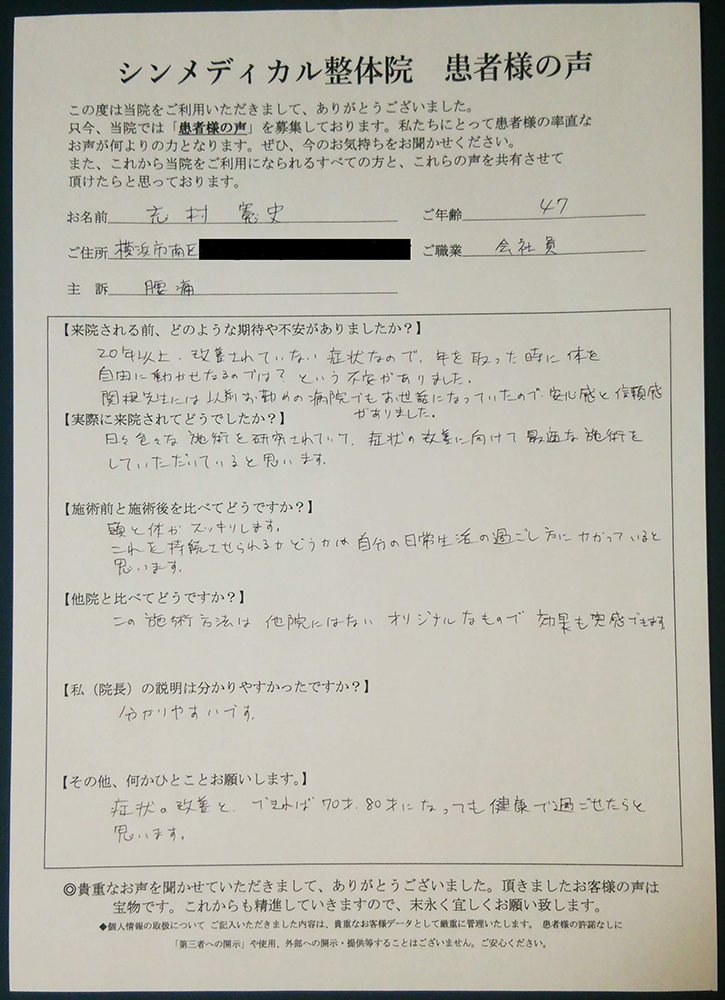 シンメディカル整体院 患者様の声
この度は当院をご利用いただきまして、ありがとうございました。
只今、当院では「患者様の声」を募集しております。私たちにとって患者様の率直な
お声が何よりの力となります。ぜひ、今のお気持ちをお聞かせください。
また、これから当院をご利用になられるすべての方と、これらの声を共有させて
頂けたらと思っております。
お名前 村 憲史 ご年齢 47
ご住所 横浜市南区 ご職業 会社員
主 訴 腰痛
【来院される前、どのような期待や不安がありましたか？】
20年以上、改善されていない症状なので、年を取った時に体を
自由に動かせなるのでは？という不安がありました。
関根先生には以前お勤めの病院でもお世話になっていたので安心感と信頼感
がありました。
【実際に来院されてどうでしたか？】
日々色々な施術を研究されていて、症状の改善に向けて最適な施術を
していただいていると思います。
【施術前と施術後を比べてどうですか？】
頭と体がスッキリします。
これを持続させられるかどうかは自分の日常生活の過ごし方にかかっていると
思います。
【他院と比べてどうですか？】
この施術方法は他院にはないオリジナルなもので効果も実感できます
【私（院長）の説明は分かりやすかったですか？】
分かりやすいです。
【その他、何かひとことお願いします。】
症状の改善と、できれば70才、80才になっても健康で過ごせたらと
思います。
◎貴重なお声を聞かせていただきまして、ありがとうございました。頂きましたお客様の声は
宝物です。これからも精進していきますので、末永く宜しくお願い致します。
◆個人情報の取扱について ご記入いただきました内容は、貴重なお客様データとして厳重に管理いたします。 患者様の許諾なしに
「第三者への開示」や使用、外部への開示・提供等することはございません。ご安心ください。